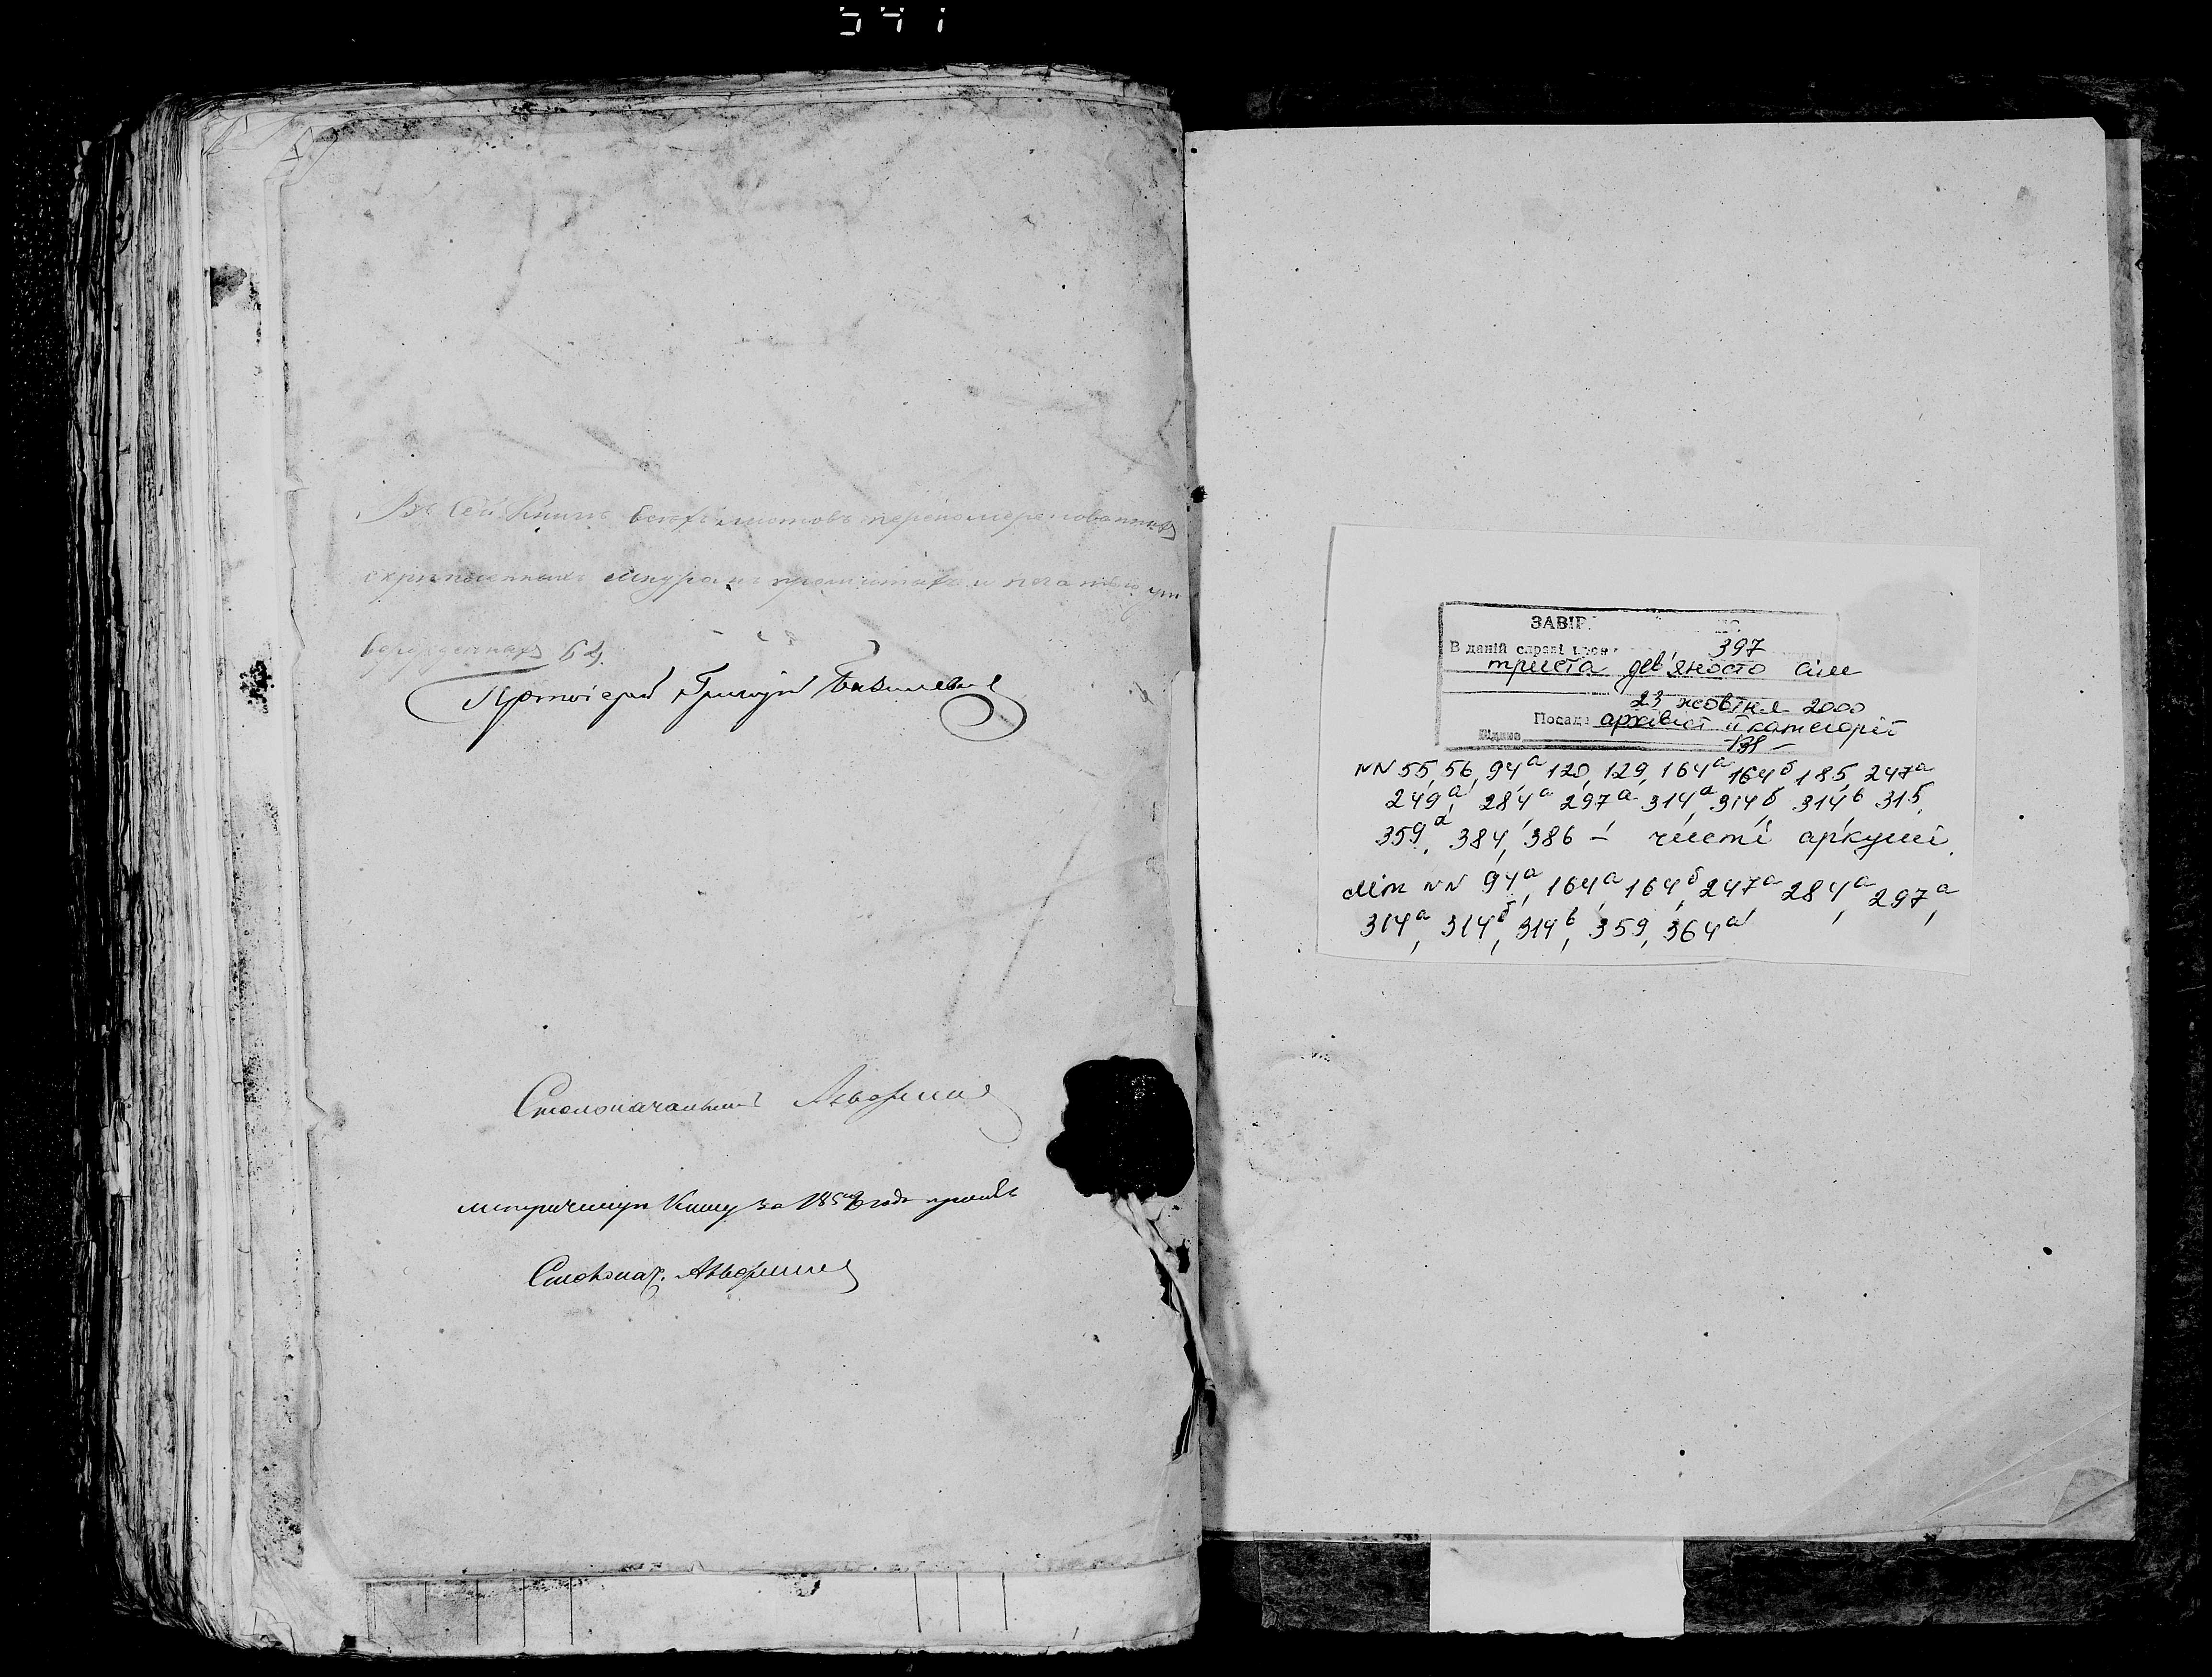 541
Въ сей Книгѣ всехъ листовъ переномерованныхъ
скрепленныхъ шнуромъ и печатью ут
вержденныхъ 64.
Протоіерей Григорій
Столоначальникъ
метрическую Книгу за годъ принялъ
Столонач.
ЗАВІР
В даній справі 397
триста дев'яносто сім
23 жовтня 2000
Посада архівіст II категорії
Підпис
NN 55, 56, 94а 120, 129, 164а 164б 185, 247а
249а, 284а 297а 314а 314б 314в 315,
359а, 384, 386 – чисті аркуші.
Літ NN 94а, 164а, 164б, 247а, 284а, 297а,
314а, 314б, 314в, 359, 364а